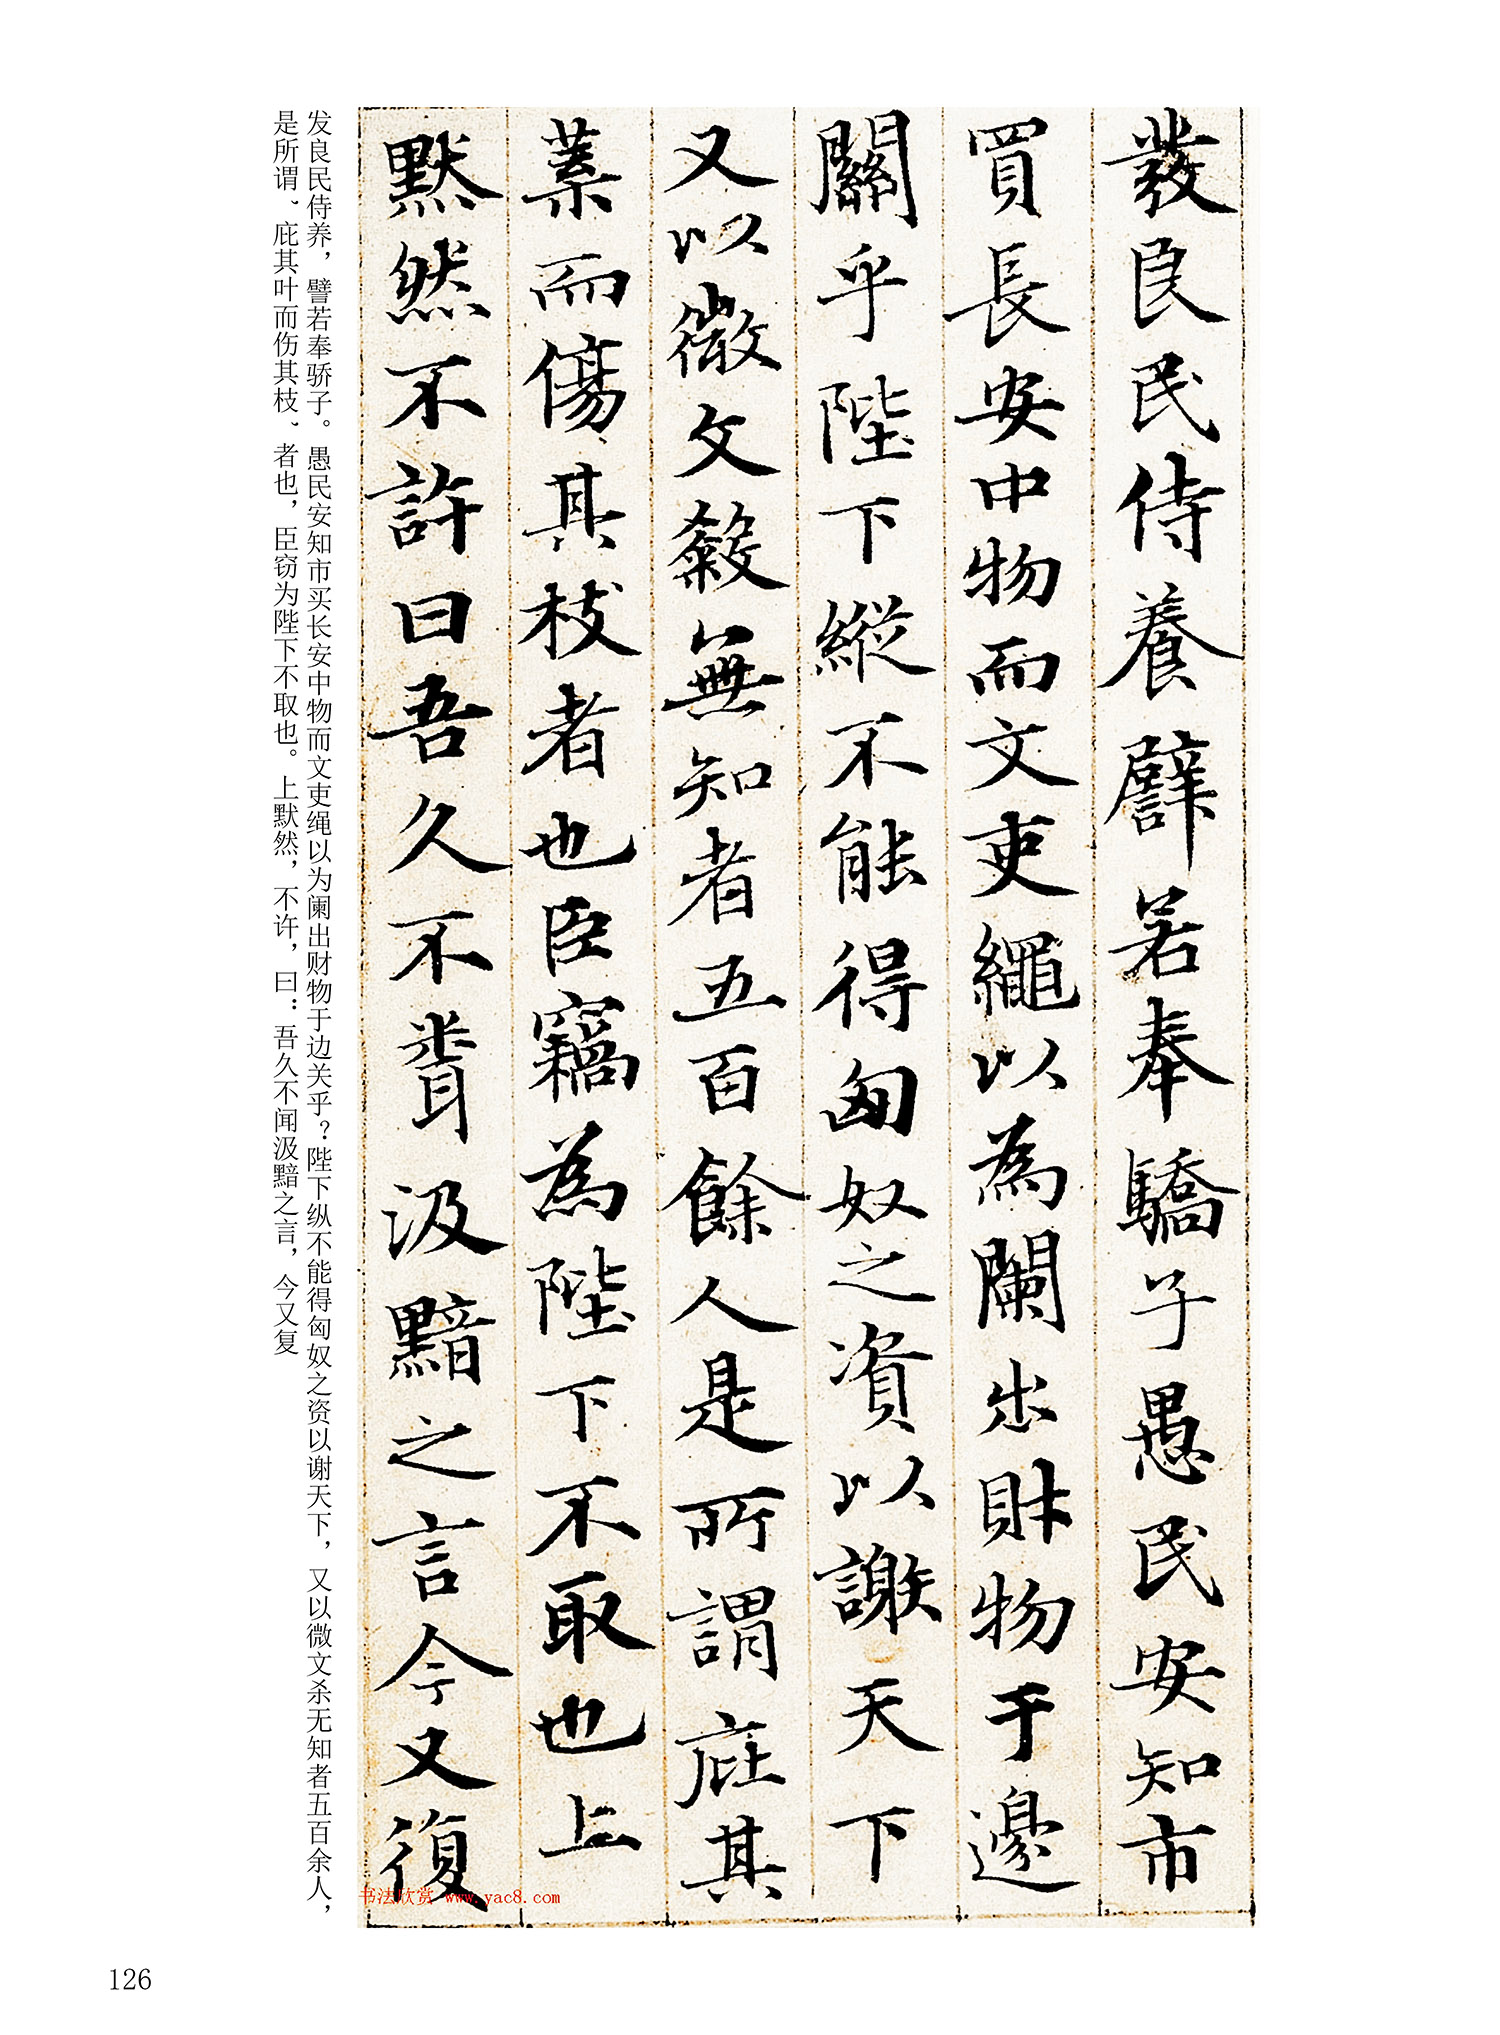 發良民侍養譬若奉驕子愚民安知市
買長安中物而文吏繩以為闌出財物于邊
關乎陛下縱不能得匈奴之資以謝天下
又以微文殺無知者五百餘人是所謂庇其
葉而傷其枝者也臣竊為陛下不取也上
默然不許曰吾久不聞汲黯之言今又復
发良民侍养，譬若奉骄子。愚民安知市买长安中物而文吏绳以为阑出财物于边关乎？陛下纵不能得匈奴之资以谢天下，又以微文杀无知者五百余人，
是所谓、庇其叶而伤其枝、者也，臣窃为陛下不取也。上默然，不许，曰：吾久不闻汲黯之言，今又复
书法欣赏 www.yac8.com
126